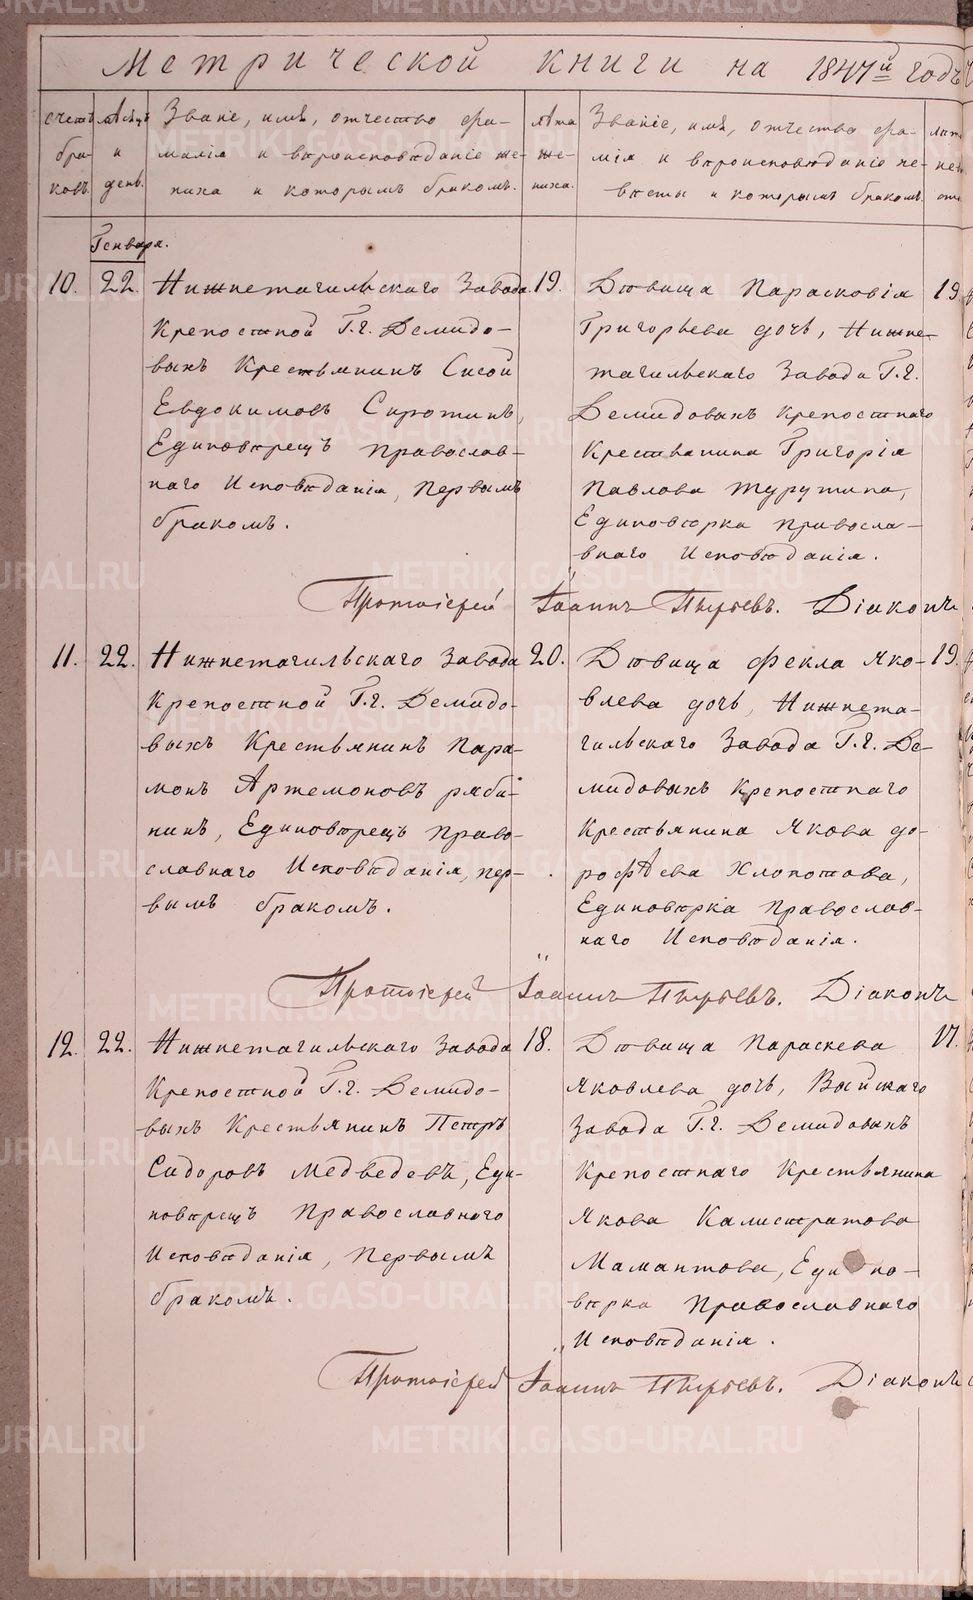 Метрической книги на 1847й годъ
счетъ браковъ.
Мѣсяцъ и день.
Званіе, имя, отчество фа-
милія и вѣроисповѣданіе же-
ниха и которымъ бракомъ.
Лѣта же-
ниха.
Званіе, имя, отчество фа-
мілія и вѣроисповѣданіе не-
вѣсты и которымъ бракомъ.
Генваря.
10. 22.
Нижнетагильскаго Завода
Крепостной Г.г. Демидо-
выхъ Крестьянинъ Сисой
Евдокимовъ Сиротинъ,
Единовѣрецъ православ-
наго Исповѣданія, первымъ
бракомъ.
19.
Дѣвица Парасковія
Григорьева дочь, Нижне-
тагильскаго Завода Г.г.
Демидовыхъ крепостнаго
Крестьянина Григорія
Павлова Турутина,
Единовѣрка православ-
внаго Исповѣданія.
19
Протоіерей Іоаннъ Пырьевъ. Діаконъ
11. 22.
Нижнетагильскаго Завода
Крепостной Г.г. Демидо-
выхъ Крестьянинъ Пара-
монъ Артемоновъ ряби-
нинъ, Единовѣрецъ право-
славнаго Исповѣданія, пер-
вымъ бракомъ.
20.
Дѣвица Фекла Яко-
влева дочь, Нижнета-
гильскаго Завода Г.г. Де-
мидовыхъ Крепостнаго
Крестьянина Якова до-
рофѣева Хлопотова,
Единовѣрка православ-
наго Исповѣданія.
19.
Протоіерей Іоаннъ Пырьевъ. Діаконъ
12. 22.
Нижнетагильскаго Завода
Крепостной Г.г. Демидо-
выхъ Крестьянинъ Петръ
Сидоровъ Медведевъ, Еди-
новѣрецъ Православнаго
Исповѣданія, Первымъ
бракомъ.
18.
Дѣвица Параскева
Яковлева дочь, Выйскаго
Завода Г.г. Демидовыхъ
Крепостнаго Крестьянина
Якова Калистратова
Мамантова, Едино-
вѣрка Православнаго
Исповѣданія.
17.
Протоіерей Іоаннъ Пырьевъ. Діаконъ
METRIKI.GASO-URAL.RU